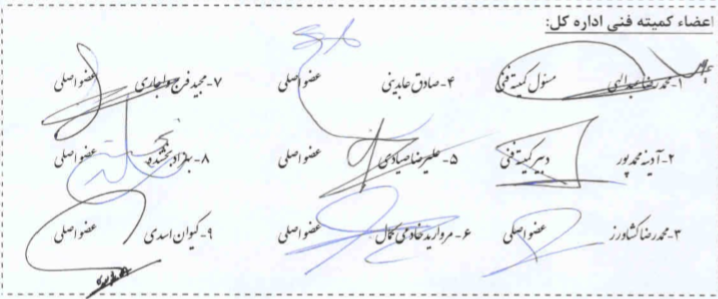 اعضاء کمیته فنی اداره کل:
۱- محمدرضا عبدالهی مسئول کمیته فنی
۲- آدینه محمدپور دبیر کمیته فنی
۳- محمدرضا کشاورز عضو اصلی
۴- صادق عابدینی عضو اصلی
۵- علیرضا صیادی عضو اصلی
۶- مروارید خادمی کمال عضو اصلی
۷- مجید فرج عضو اصلی
۸- بهزاد بخشنده عضو اصلی
۹- کیوان اسدی عضو اصلی